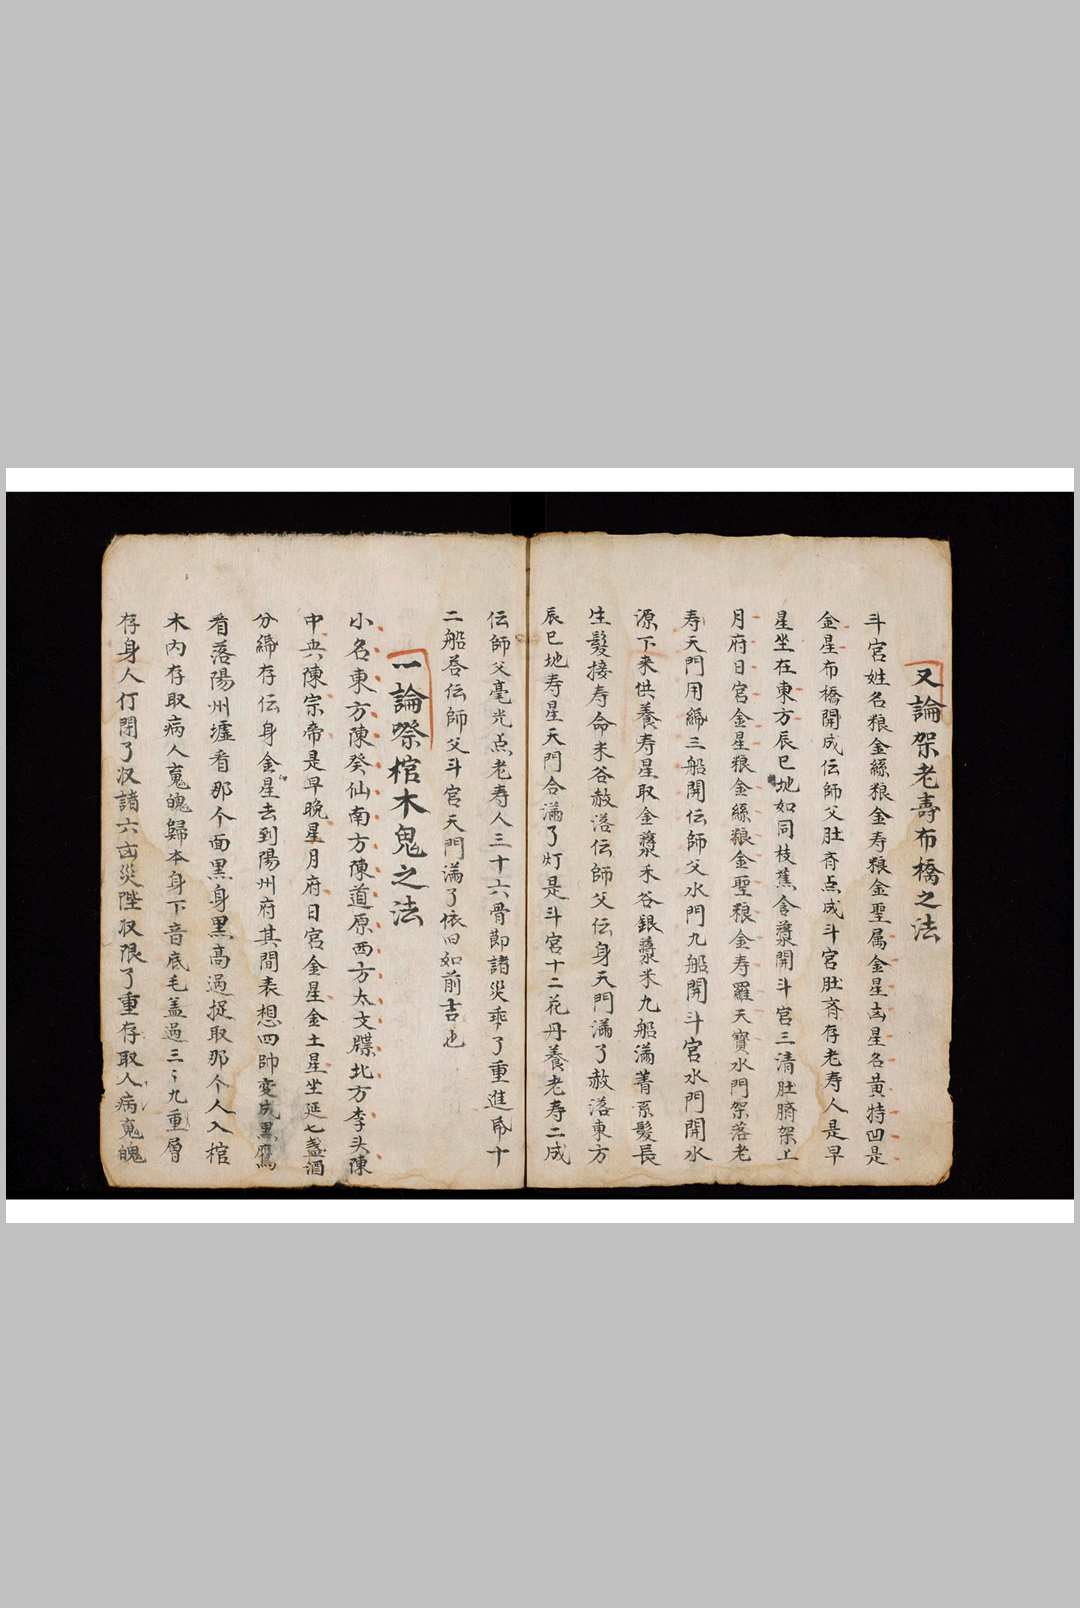 又論架老壽布橋之法
斗宮姓名粮金絲粮金寿粮金聖属金星凶星名黄特凹是
金星布橋開成伝師父肚斉点成斗宮肚斉存老寿人是早
星坐在東方辰巳地如同枝蕉含漿開斗宮三清肚臍架上
月府日宮金星粮金絲粮金聖粮金寿羅天寶水門架落老
寿天門用縧三船開伝師父水門九船開斗宮水門開水
源下来供養寿星取金漿禾谷銀漿米九船滿菁系髮長
生髮接寿命米谷赦落伝師父伝身天門滿了赦落東方
辰巳地寿星天門合滿了灯是斗宮十二花丹養老寿二成
伝師父毫光点老寿人三十六骨節諸災乖了重進用十
二船吞伝師父斗官天門滿了依旧如前吉也
一論祭棺木鬼之法
小名東方陳癸仙南方陳道原西方太文牒北方李头陳
中央陳宗帝是早晚星月府日宮金星金土星坐延七盞酒
分縧存伝身金星去到陽州府其間表想四帥变成黒鴈
看落陽州墟看那个面黒身黒高過捉取那个人入棺
木内存取病人䰟魄歸本身下音底毛盖過三〻九重層
存身人行閉了汉諸六凶災陛収限了重存取人病䰟魄